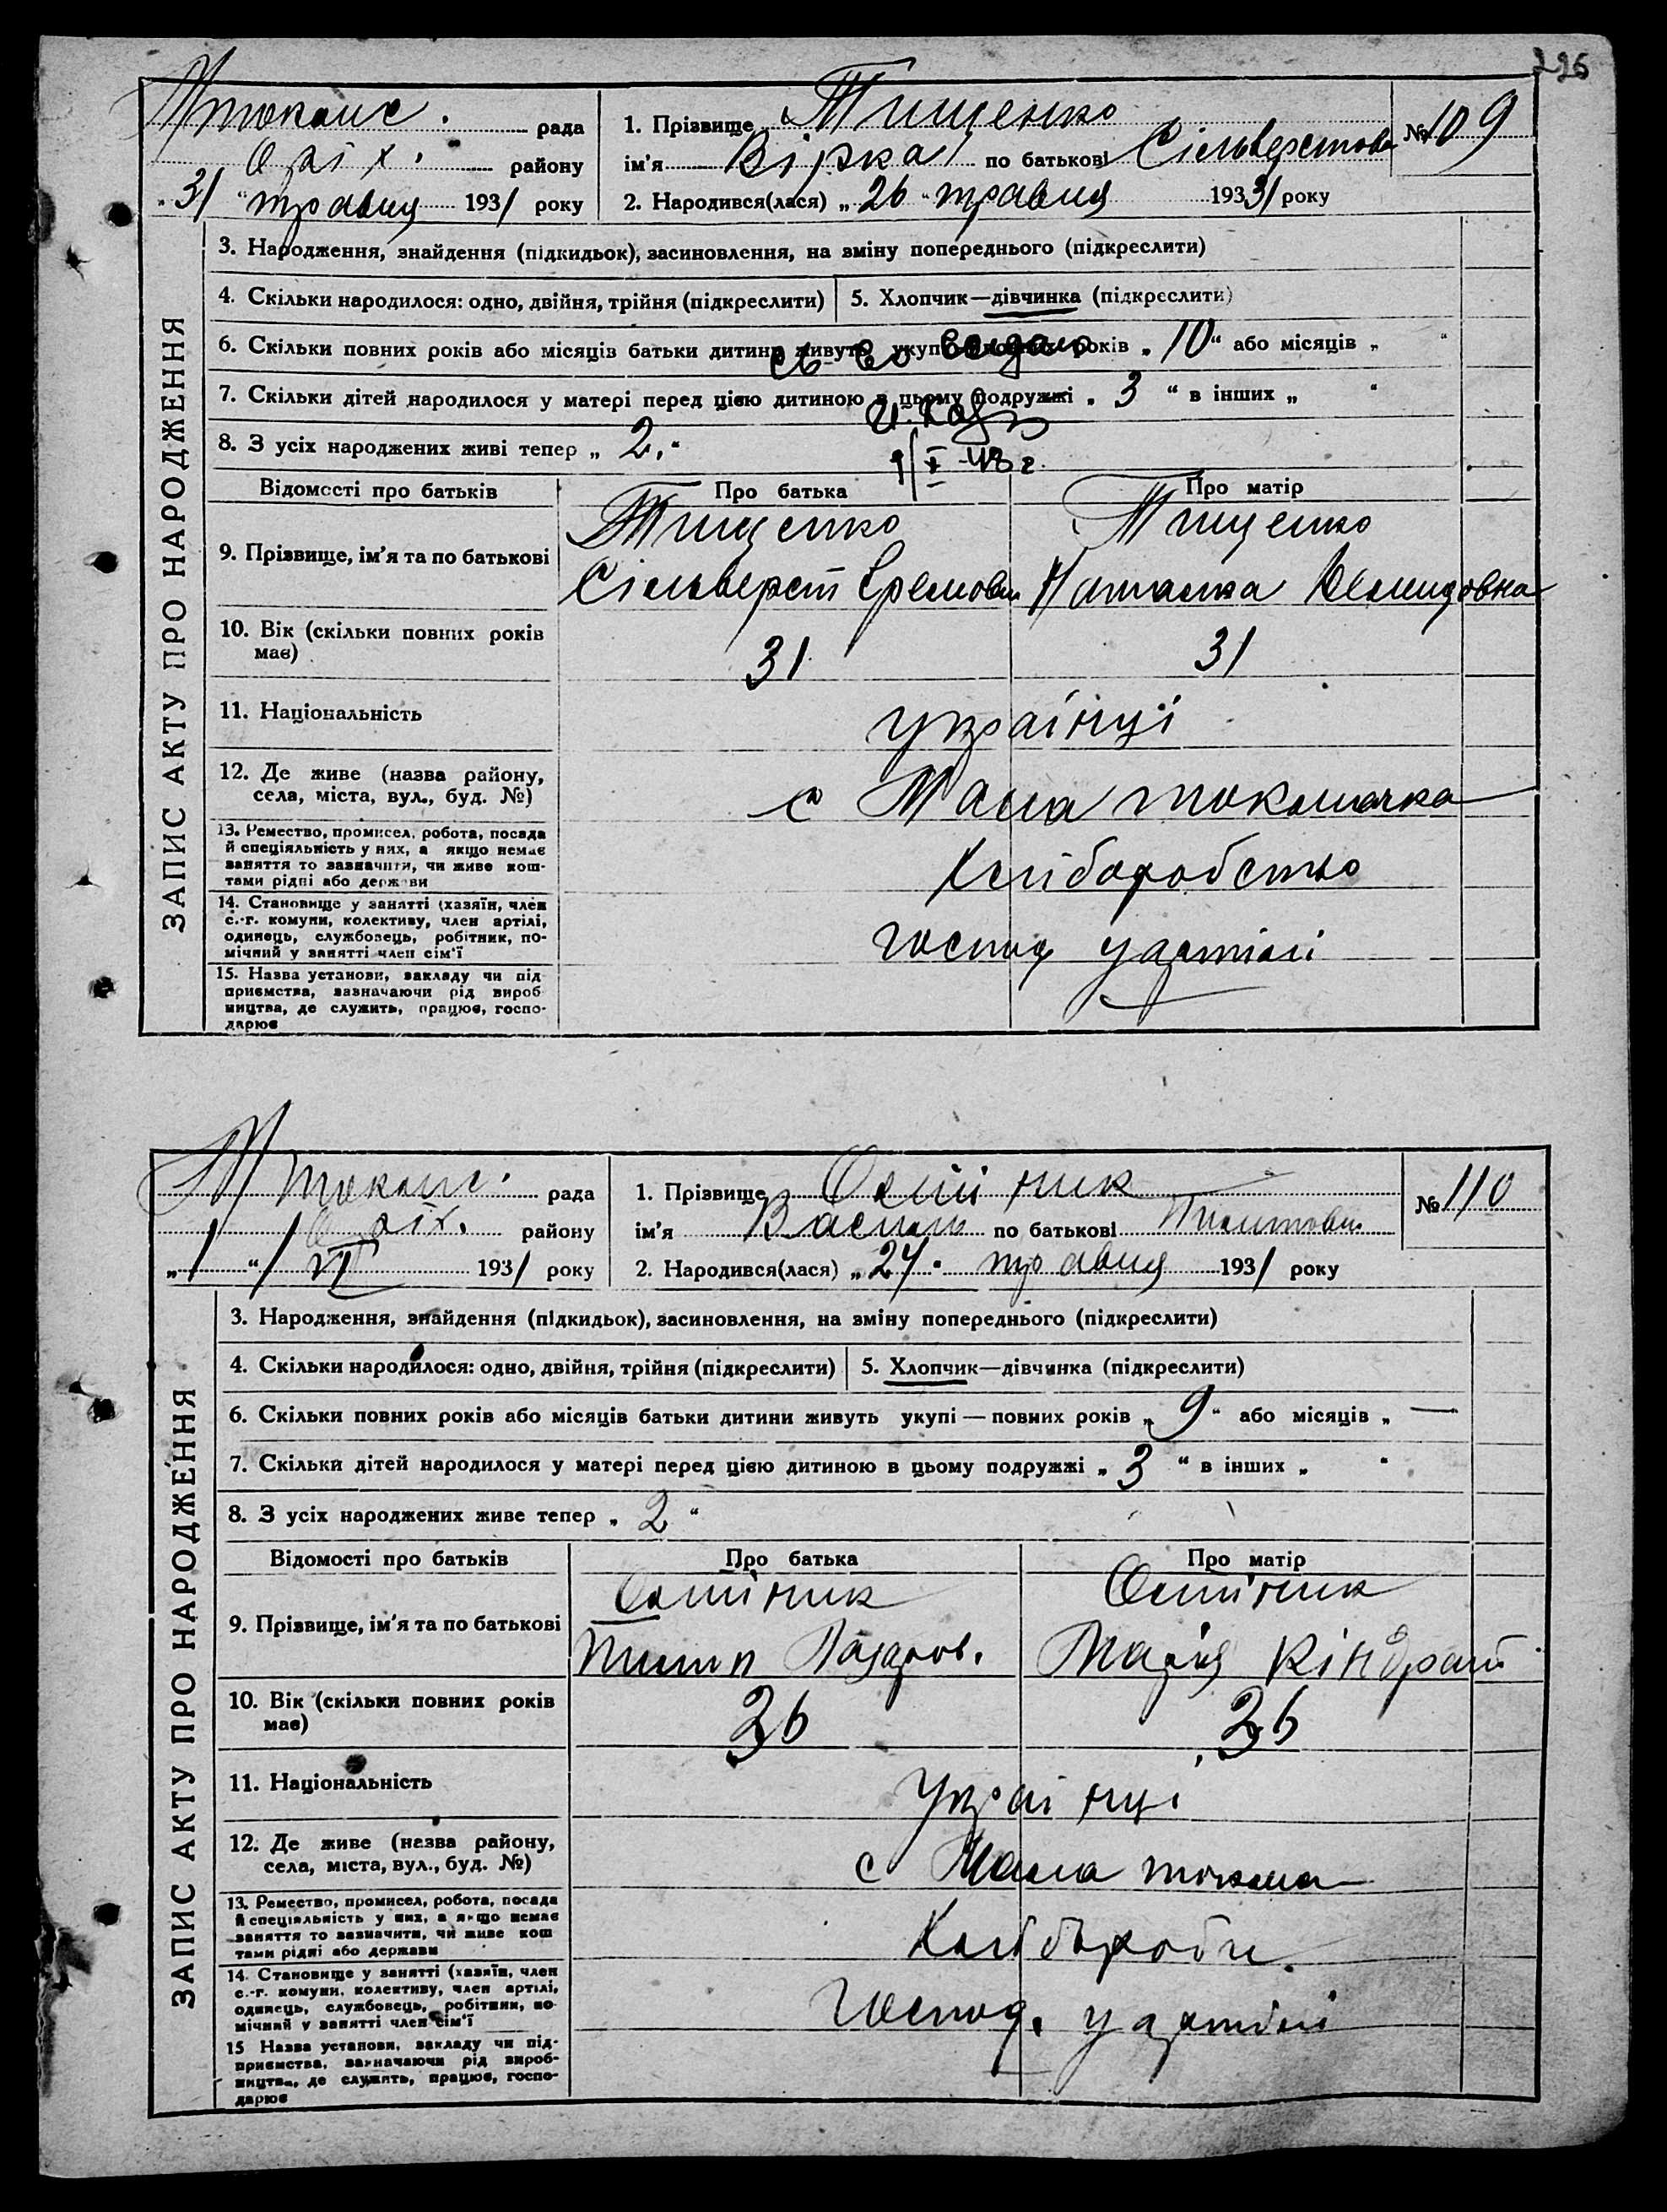 226
М токмає. рада
Оріх. району
„31“ травня 1931 року
1. Прізвище Тищенко
ім'я Вірка по батькові Сільверстовн
№ 109
2. Народився(лася) „26“ травня 1931 року
3. Народження, знайдення (підкидьок), засиновлення, на зміну попереднього (підкреслити)
4. Скільки народилося: одно, двійня, трійня (підкреслити)
5. Хлопчик—дівчинка (підкреслити)
6. Скільки повних років або місяців батьки дитини живуть укупі — повних років „10“ або місяців „ “
св-во выдано
7. Скільки дітей народилося у матері перед цією дитиною в цьому подружжі „3“ в інших „ “
8. З усіх народжених живі тепер „2.“
9/X-48 г.
Відомості про батьків
Про батька
Про матір
9. Прізвище, ім'я та по батькові
Тищенко
Сільверст Єремович
Тищенко
Наталка Демидовна
10. Вік (скільки повних років має)
31
31
11. Національність
українці
12. Де живе (назва району, села, міста, вул., буд. №)
с Мала токмачка
13. Ремество, промисел, робота, посада й спеціяльність у них, а якщо немає заняття то зазначити, чи живе коштами рідні або держави
Хліборобство
14. Становище у занятті (хазяїн, член с.-г. комуни, колективу, член артілі, одинець, службовець, робітник, помічний у занятті член сім'ї
господ у артілі
15. Назва установи, закладу чи підприємства, зазначаючи рід виробництва, де служить, працює, господарює
ЗАПИС АКТУ ПРО НАРОДЖЕННЯ
М токмає. рада
Оріх. району
„1“ VI 1931 року
1. Прізвище Олійник
ім'я Василь по батькові Пилипович
№ 110
2. Народився(лася) „27“ травня 1931 року
3. Народження, знайдення (підкидьок), засиновлення, на зміну попереднього (підкреслити)
4. Скільки народилося: одно, двійня, трійня (підкреслити)
5. Хлопчик—дівчинка (підкреслити)
6. Скільки повних років або місяців батьки дитини живуть укупі — повних років „9“ або місяців „—“
7. Скільки дітей народилося у матері перед цією дитиною в цьому подружжі „3“ в інших „ “
8. З усіх народжених живе тепер „2“
Відомості про батьків
Про батька
Про матір
9. Прізвище, ім'я та по батькові
Олійник
Пилип Лазаров.
Олійник
Марія Кіндрат
10. Вік (скільки повних років має)
36
36
11. Національність
Українці
12. Де живе (назва району, села, міста, вул., буд. №)
с Мала токма
13. Ремество, промисел, робота, посада й спеціяльність у них, а якщо немає заняття то зазначити, чи живе коштами рідні або держави
14. Становище у занятті (хазяїн, член с.-г. комуни, колективу, член артілі, одинець, службовець, робітник, помічний у занятті член сім'ї
Господ. у артілі
15 Назва установи, закладу чи підприємства, зазначаючи рід виробництва, де служить, працює, господарює
ЗАПИС АКТУ ПРО НАРОДЖЕННЯ